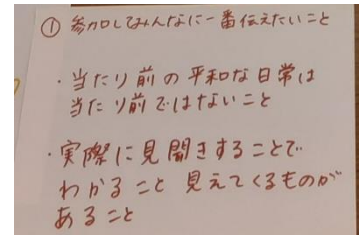 ① 参加してみんなに一番伝えたいこと
・当たり前の平和な日常は
当たり前ではないこと
・実際に見聞きすることで
わかること 見えてくるものが
あること